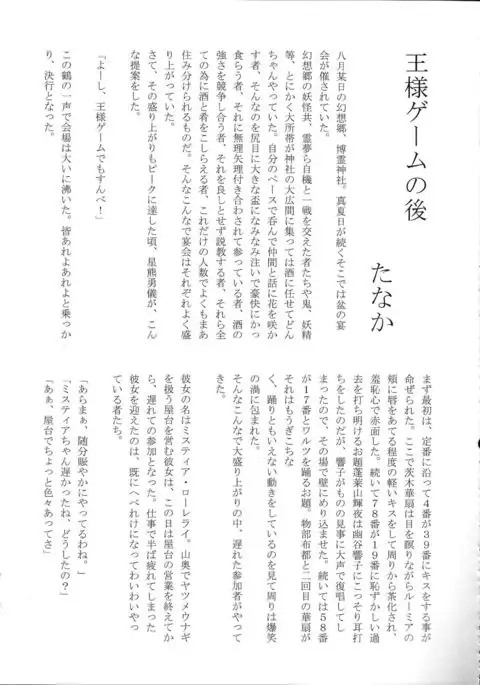 王様ゲームの後
たなか
八月某日の幻想郷、博霊神社。真夏日が続くそこでは盆の宴
会が催されていた。
幻想郷の妖怪共、霊夢ら自機と一戦を交えた者たちや鬼、妖精
等、とにかく大所帯が神社の大広間に集っては酒に任せてどん
ちゃんやっていた。自分のペースで呑んで仲間と話に花を咲か
す者、そんなのを尻目に大きな盃になみなみ注いで豪快にかっ
食らう者、それに無理矢理付き合わされて参っている者、酒の
強さを競争し合う者、それを良しとせず説教する者、それら全
ての為に酒と肴をこしらえる者、これだけの人数でよくもまあ
住み分けられるものだ。そんなこんなで宴会はそれぞれよく盛
り上がっていた。
さて、その盛り上がりもピークに達した頃、星熊勇儀が、こん
な提案をした。
「よーし、王様ゲームでもすんべ！」
この鶴の一声で会場は大いに沸いた。皆あれよあれよと乗っか
り、決行となった。
まず最初は、定番に沿って４番が３９番にキスをする事が
命ぜられた。ここで茨木華扇は目を瞑りながらルーミアの
頬に唇をあてる程度の軽いキスをして周りから茶化され、
羞恥心で赤面した。続いて７８番が１９番に恥ずかしい過
去を打ち明けるお題蓬莱山輝夜は幽谷響子にこっそり耳打
ちをしたのだが、響子がものの見事に大声で復唱してし
まったので、その場で壁にめり込ませた。続いては５８番
が１７番とワルツを踊るお題。物部布都と二回目の華扇が
それはもうぎこちな
く、踊りともいえない動きをしているのを見て周りは爆笑
の渦に包まれた。
そんなこんなで大盛り上がりの中、遅れた参加者がやって
きた。
彼女の名はミスティア・ローレライ。山奥でヤツメウナギ
を扱う屋台を営む彼女は、この日は屋台の営業を終えてか
ら、遅れての参加となった。仕事で半ば疲れてしまった
彼女を迎えたのは、既にへべれけになってわいわいやっ
ている者たち。
「あらまぁ、随分賑やかにやってるわね。」
「ミスティアちゃん遅かったね、どうしたの？」
「あぁ、屋台でちょっと色々あってさ」